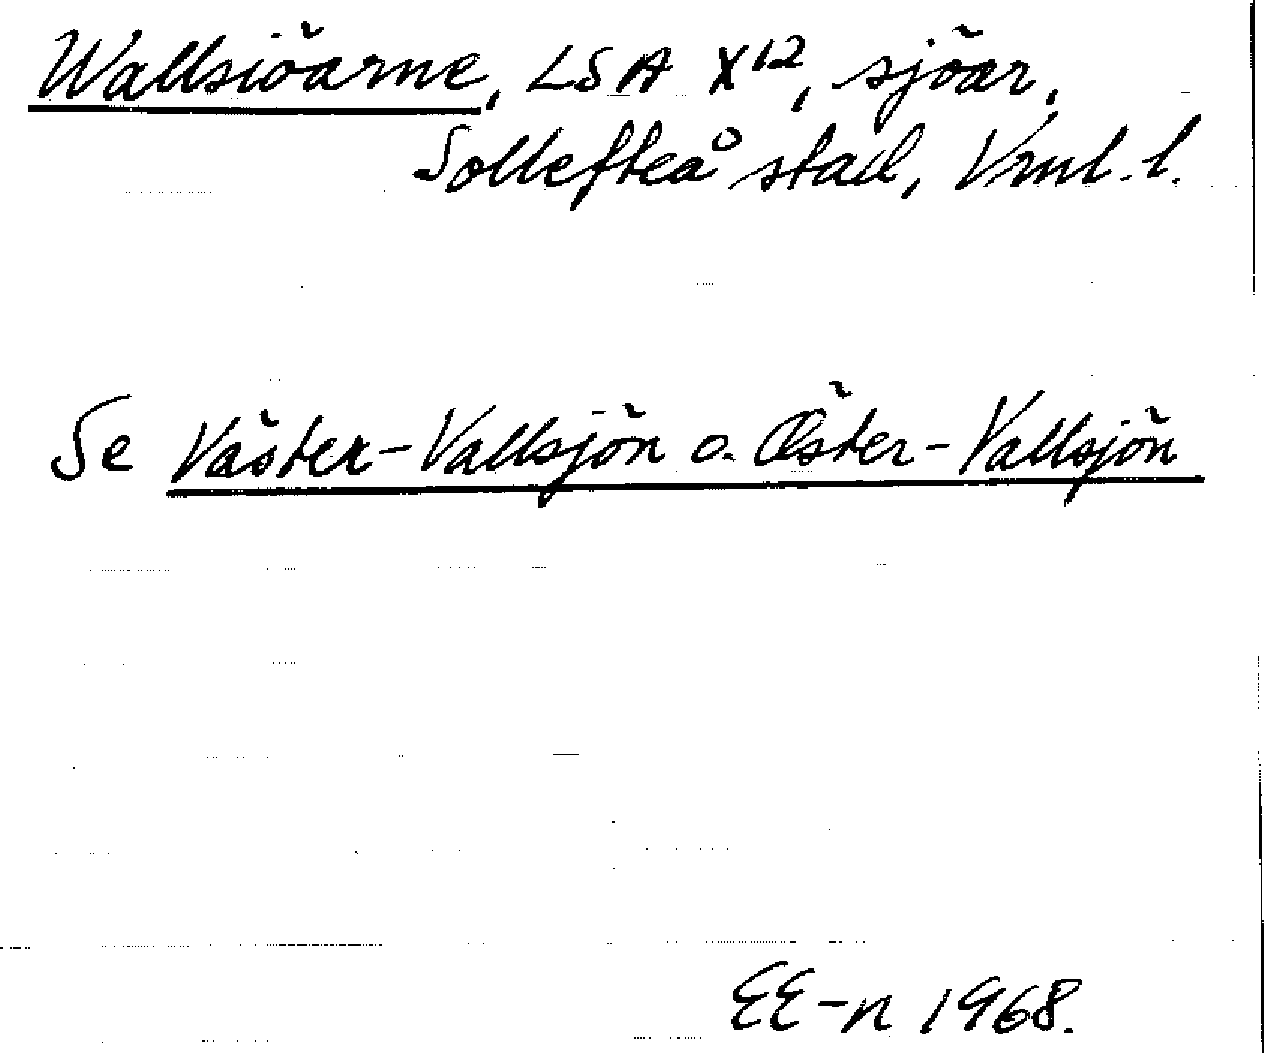 Wallsiöarne, LSA X¹², sjöar,
Sollefteå stad, Vrnl. l.
Se Väster-Vallsjön o. Öster-Vallsjön
EE-n 1968.